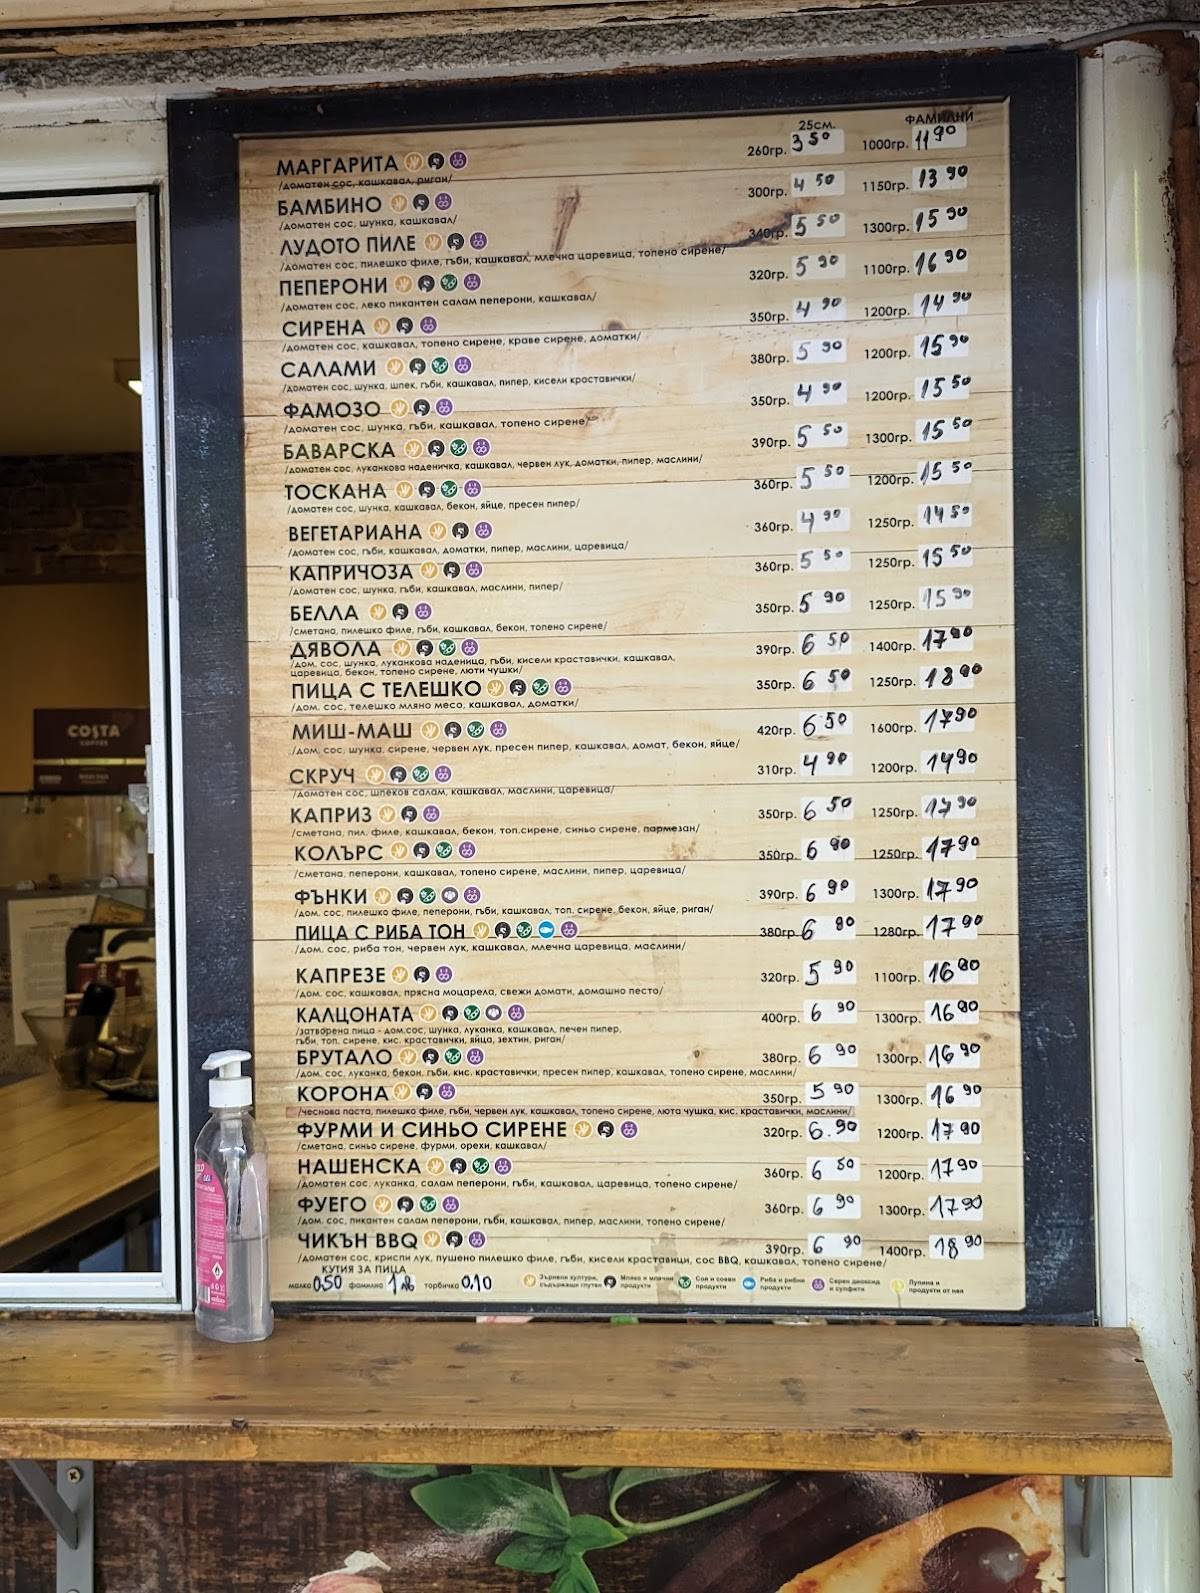 25см. ФАМИЛНИ
МАРГАРИТА 260гр. 3 50 1000гр. 11 90
/доматен сос, кашкавал, риган/
БАМБИНО 300гр. 4 50 1150гр. 13 90
/доматен сос, шунка, кашкавал/
ЛУДОТО ПИЛЕ 340гр. 5 50 1300гр. 15 90
/доматен сос, пилешко филе, гъби, кашкавал, млечна царевица, топено сирене/
ПЕПЕРОНИ 320гр. 5 90 1100гр. 16 90
/доматен сос, леко пикантен салам пеперони, кашкавал/
СИРЕНА 350гр. 4 90 1200гр. 14 90
/доматен сос, кашкавал, топено сирене, краве сирене, доматки/
САЛАМИ 380гр. 5 90 1200гр. 15 90
/доматен сос, шунка, шпек, гъби, кашкавал, пипер, кисели краставички/
ФАМОЗО 350гр. 4 90 1200гр. 15 50
/доматен сос, шунка, гъби, кашкавал, топено сирене/
БАВАРСКА 390гр. 5 50 1300гр. 15 50
/доматен сос, луканкова наденичка, кашкавал, червен лук, доматки, пипер, маслини/
ТОСКАНА 360гр. 5 50 1200гр. 15 50
/доматен сос, шунка, кашкавал, бекон, яйце, пресен пипер/
ВЕГЕТАРИАНА 360гр. 4 90 1250гр. 14 50
/доматен сос, гъби, кашкавал, доматки, пипер, маслини, царевица/
КАПРИЧОЗА 360гр. 5 50 1250гр. 15 50
/доматен сос, шунка, гъби, кашкавал, маслини, пипер/
БЕЛЛА 350гр. 5 90 1250гр. 15 90
/сметана, пилешко филе, гъби, кашкавал, бекон, топено сирене/
ДЯВОЛА 390гр. 6 50 1400гр. 17 90
/дом. сос, шунка, луканкова наденица, гъби, кисели краставички, кашкавал,
царевица, бекон, топено сирене, люти чушки/
ПИЦА С ТЕЛЕШКО 350гр. 6 50 1250гр. 18 90
/дом. сос, телешко мляно месо, кашкавал, доматки/
МИШ-МАШ 420гр. 6 50 1600гр. 17 90
/дом. сос, шунка, сирене, червен лук, пресен пипер, кашкавал, домат, бекон, яйце/
СКРУЧ 310гр. 4 90 1200гр. 14 90
/доматен сос, шпеков салам, кашкавал, маслини, царевица/
КАПРИЗ 350гр. 6 50 1250гр. 17 90
/сметана, пил. филе, кашкавал, бекон, топ.сирене, синьо сирене, пармезан/
КОЛЪРС 350гр. 6 90 1250гр. 17 90
/сметана, пеперони, кашкавал, топено сирене, маслини, пипер, царевица/
ФЪНКИ 390гр. 6 90 1300гр. 17 90
/дом. сос, пилешко филе, пеперони, гъби, кашкавал, топ. сирене, бекон, яйце, риган/
ПИЦА С РИБА ТОН 380гр. 6 90 1280гр. 17 90
/дом. сос, риба тон, червен лук, кашкавал, млечна царевица, маслини/
КАПРЕЗЕ 320гр. 5 90 1100гр. 16 90
/дом. сос, кашкавал, прясна моцарела, свежи домати, домашно песто/
КАЛЦОНАТА 400гр. 6 90 1300гр. 16 90
/затворена пица - дом.сос, шунка, луканка, кашкавал, печен пипер,
гъби, топ. сирене, кис. краставички, яйца, зехтин, риган/
БРУТАЛО 380гр. 6 90 1300гр. 16 90
/дом. сос, луканка, бекон, гъби, кис. краставички, пресен пипер, кашкавал, топено сирене, маслини/
КОРОНА 350гр. 5 90 1300гр. 16 90
/чеснова паста, пилешко филе, гъби, червен лук, кашкавал, топено сирене, люта чушка, кис. краставички, маслини/
ФУРМИ И СИНЬО СИРЕНЕ 320гр. 6.90 1200гр. 17 90
/сметана, синьо сирене, фурми, орехи, кашкавал/
НАШЕНСКА 360гр. 6 50 1200гр. 17 90
/доматен сос, луканка, салам пеперони, гъби, кашкавал, царевица, топено сирене/
ФУЕГО 360гр. 6 90 1300гр. 17 90
/дом. сос, пикантен салам пеперони, гъби, кашкавал, пипер, маслини, топено сирене/
ЧИКЪН BBQ 390гр. 6 90 1400гр. 18 90
/доматен сос, криспи лук, пушено пилешко филе, гъби, кисели краставици, сос BBQ, кашкавал, топено сирене/
КУТИЯ ЗА ПИЦА
малко 0,50 фамилно 1 лв торбичка 0,10
Зърнени култури, съдържащи глутен Мляко и млечни продукти Соя и соеви продукти Риба и рибни продукти Серен диоксид и сулфити Лупина и продукти от нея
COSTA
COFFEE